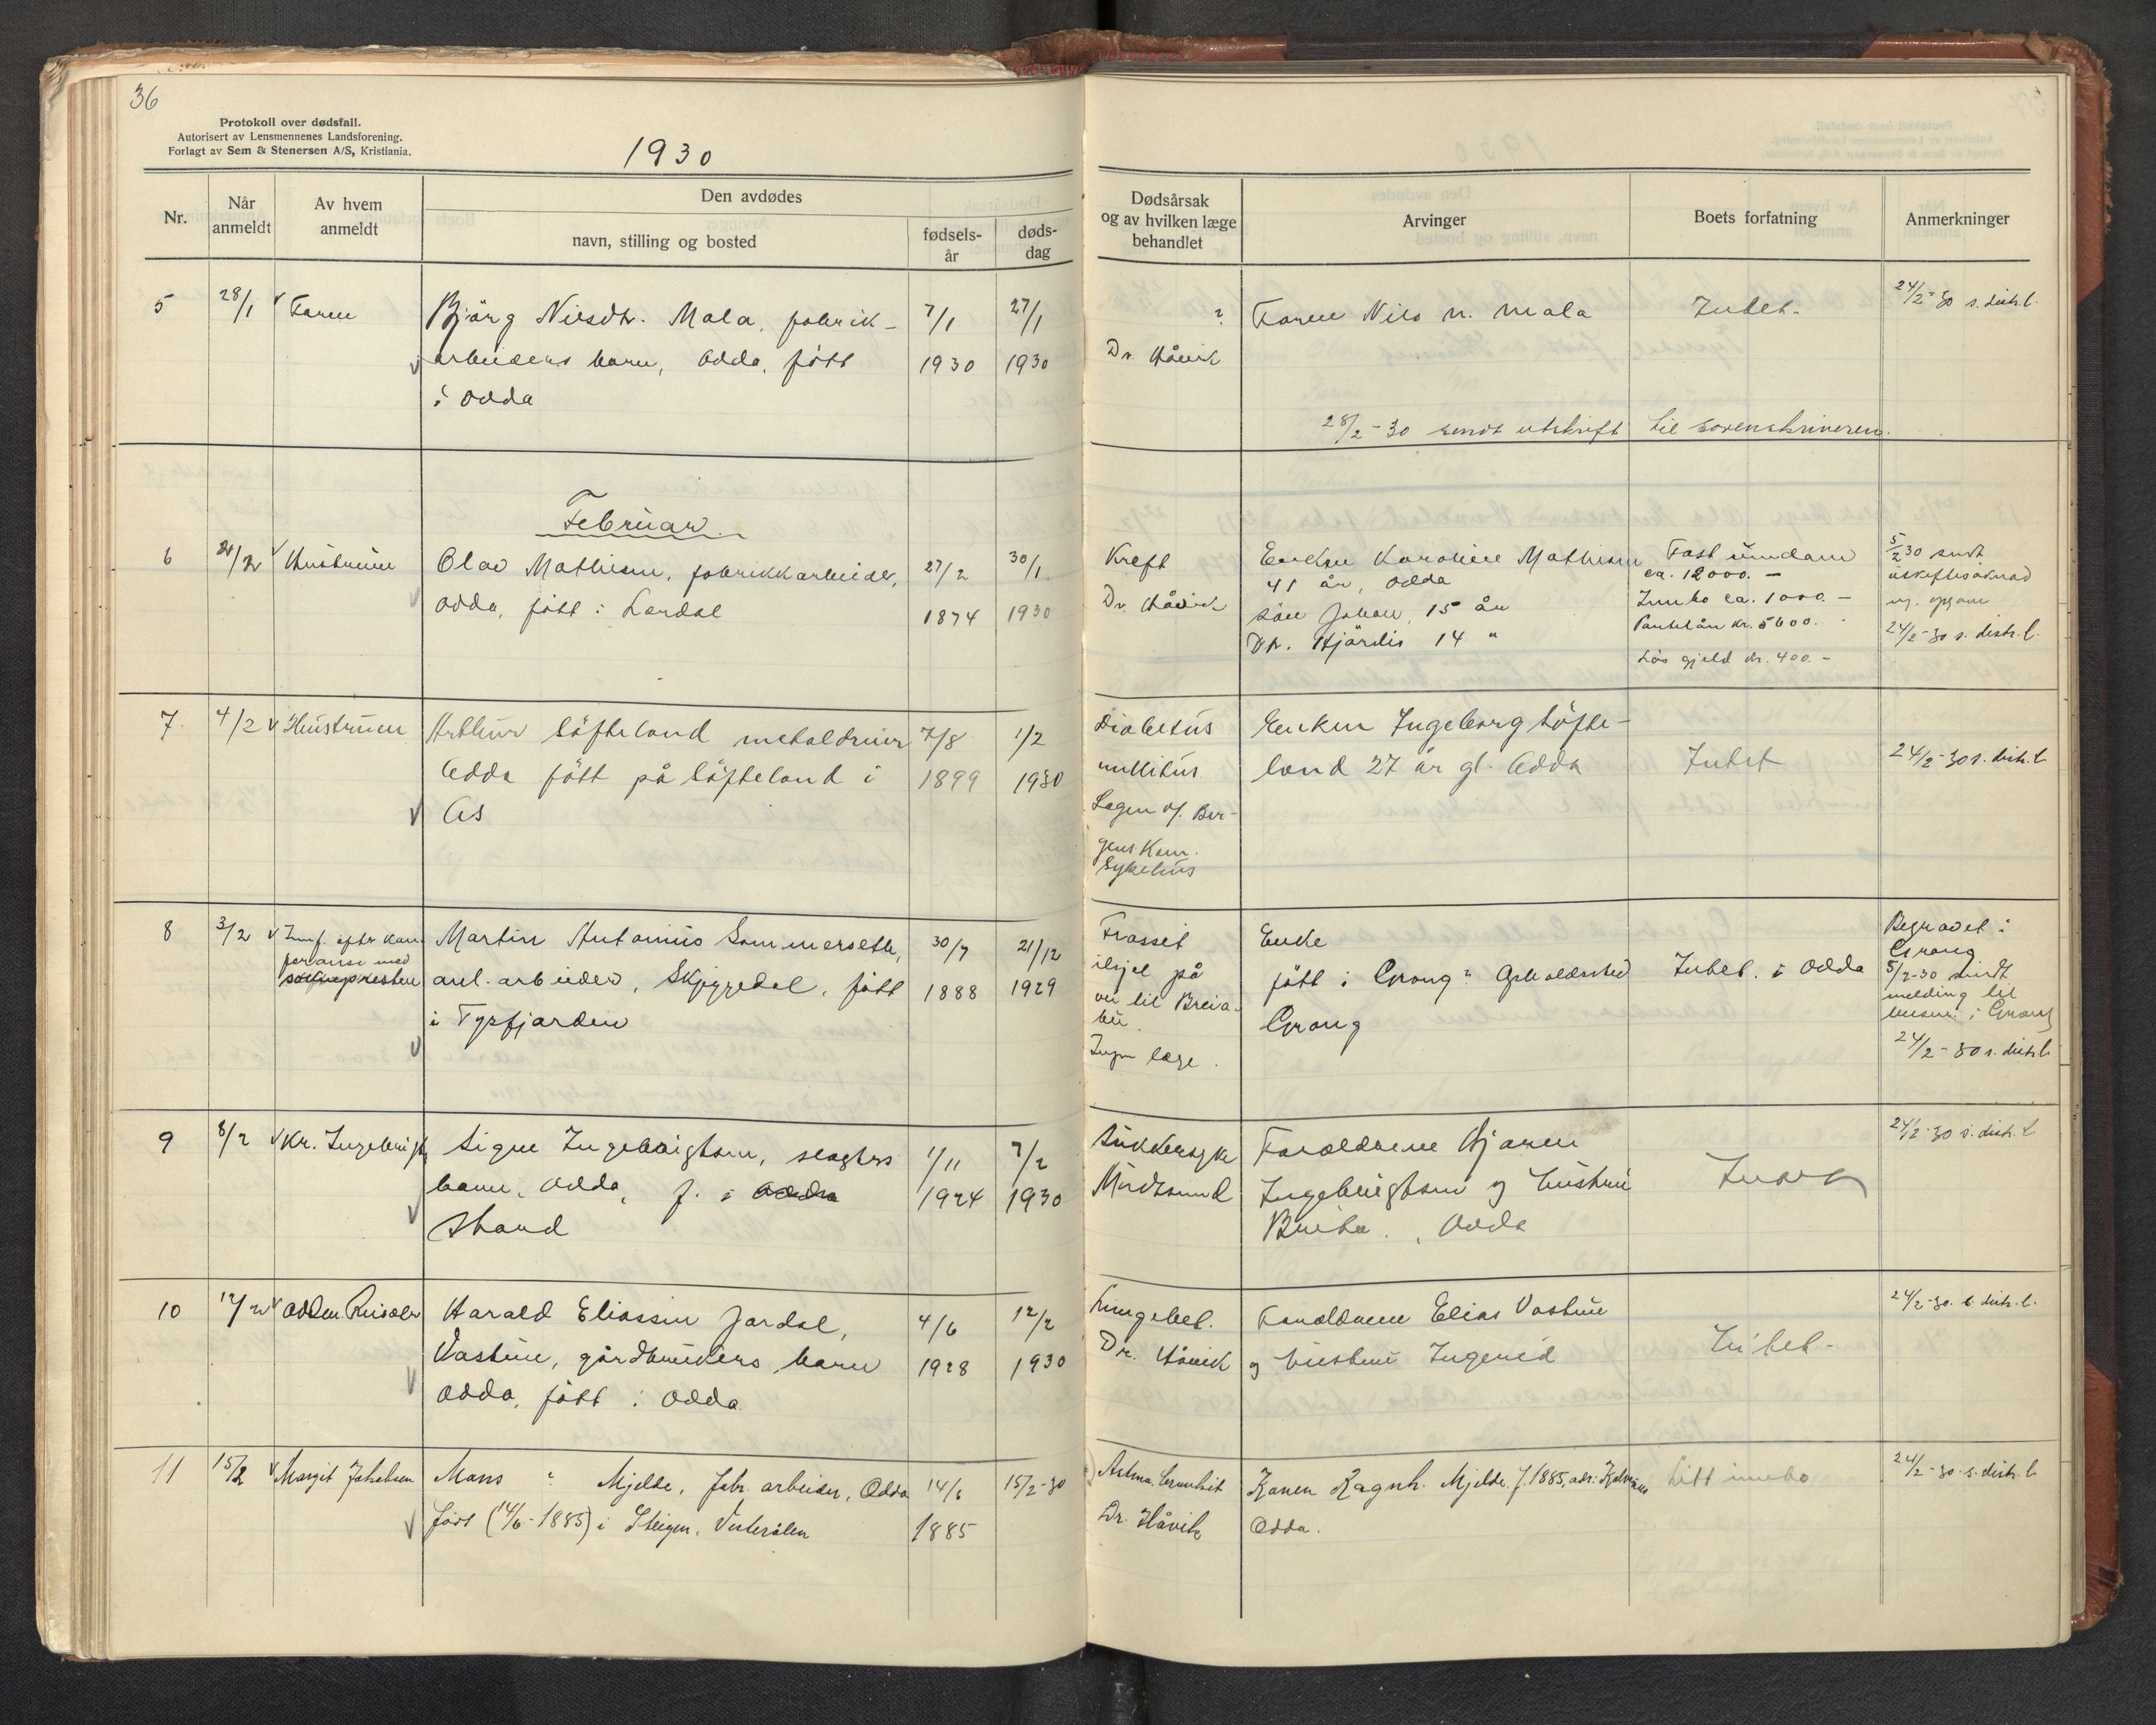 36
Protokoll over dødsfall.
Autorisert av Lensmennenes Landsforening.
Forlagt av Sem & Stenersen A/S, Kristiania.
1930
Nr.
Når anmeldt
Av hvem anmeldt
Den avdødes
navn, stilling og bosted
fødsels-år
døds-dag
Dødsårsak og av hvilken læge behandlet
Arvinger
Boets forfatning
Anmerkninger
5
28/1
Faren
Björg Nilsdtr. Mala, fabrik-
arbeiders barn, Odda, fött
i Odda
7/1
1930
27/1
1930
?
Dr. Håvik
Faren Nils N. Mala
Intet.
24/2-30 s. distr.l.
28/2-30 sendt utskrift til sorenskriveren.
Februar.
6
Hustruen
Olav Mathisen, fabrikkarbeider,
Odda, fött i Lardal
27/2
1874
30/1
1930
Kreft
Dr. Håvik
Enken Karoline Mathisen
41 år, Odda
sön Johan, 15 år
Dtr. Hjördis 14 "
Fast eiendom
ca. 12000.-
Innbo ca. 1000.-
Pantelån kr. 5600.
Lös gjeld kr. 400.-
5/2 30 sendt
uskiftesöknad
og. opgave
24/2-30 s. distr.l.
7.
4/2
Hustruen
Arthur Söfteland metaldriver
Odda fött på Söfteland i
Os
7/8
1899
1/2
1930
Diabetus
mellitus
Legen v/. Ber-
gens Kom.
Sykehus
Enken Ingeborg Söfte-
land 27 år gl. Odda
Intet
24/2-30 s. distr.l
8
3/2
Innf. efter kon-
feranse med
soknepresten
Martin Antonius Sommerseth,
anl. arbeider, Skjeggedal, fött
i Tysfjorden
30/7
1888
21/12
1929
Frosset
ihjel på
vei til Breia-
bu.
Ingen læge.
Enke
fött i Grong? Opholdssted
Grong
Intet. i Odda
Begravet i
Grong
5/2-30 sendt
melding til
lensm. i Grong
24/2-30 s. distr.l.
9
8/2
Kr. Ingebrigts
Signe Ingebrigtsen, slagters
barn, Odda, f. i Odda
Strand
1/11
1924
7/2
1930
Sukkersyke
Foreldrene
Ingebrigtsen og hustru
Odda
24/2-30 s. distr.l
10
12/2
Harald Eliassen Jordal,
Vastun, gårdbrukers barn
Odda, fött i Odda
4/6
1928
12/2
1930
Lungebet.
Dr. Håvik
Foreldrene Elias Vastun
og hustru Ingerid
Intet.
24/2-30. s. distr.l.
11
15/2
Margit Jakobsen
Mons ? Mjelde, fabr. arbeider, Odda
Född (14/6-1885) i Steigen, Vesterålen
14/6
1885
15/2-30
Astma,
Dr. Håvik
Konen Ragnh. Mjelde. f. 1885, adr:
Odda.
Litt innbo
24/2-30. s. distr.l.